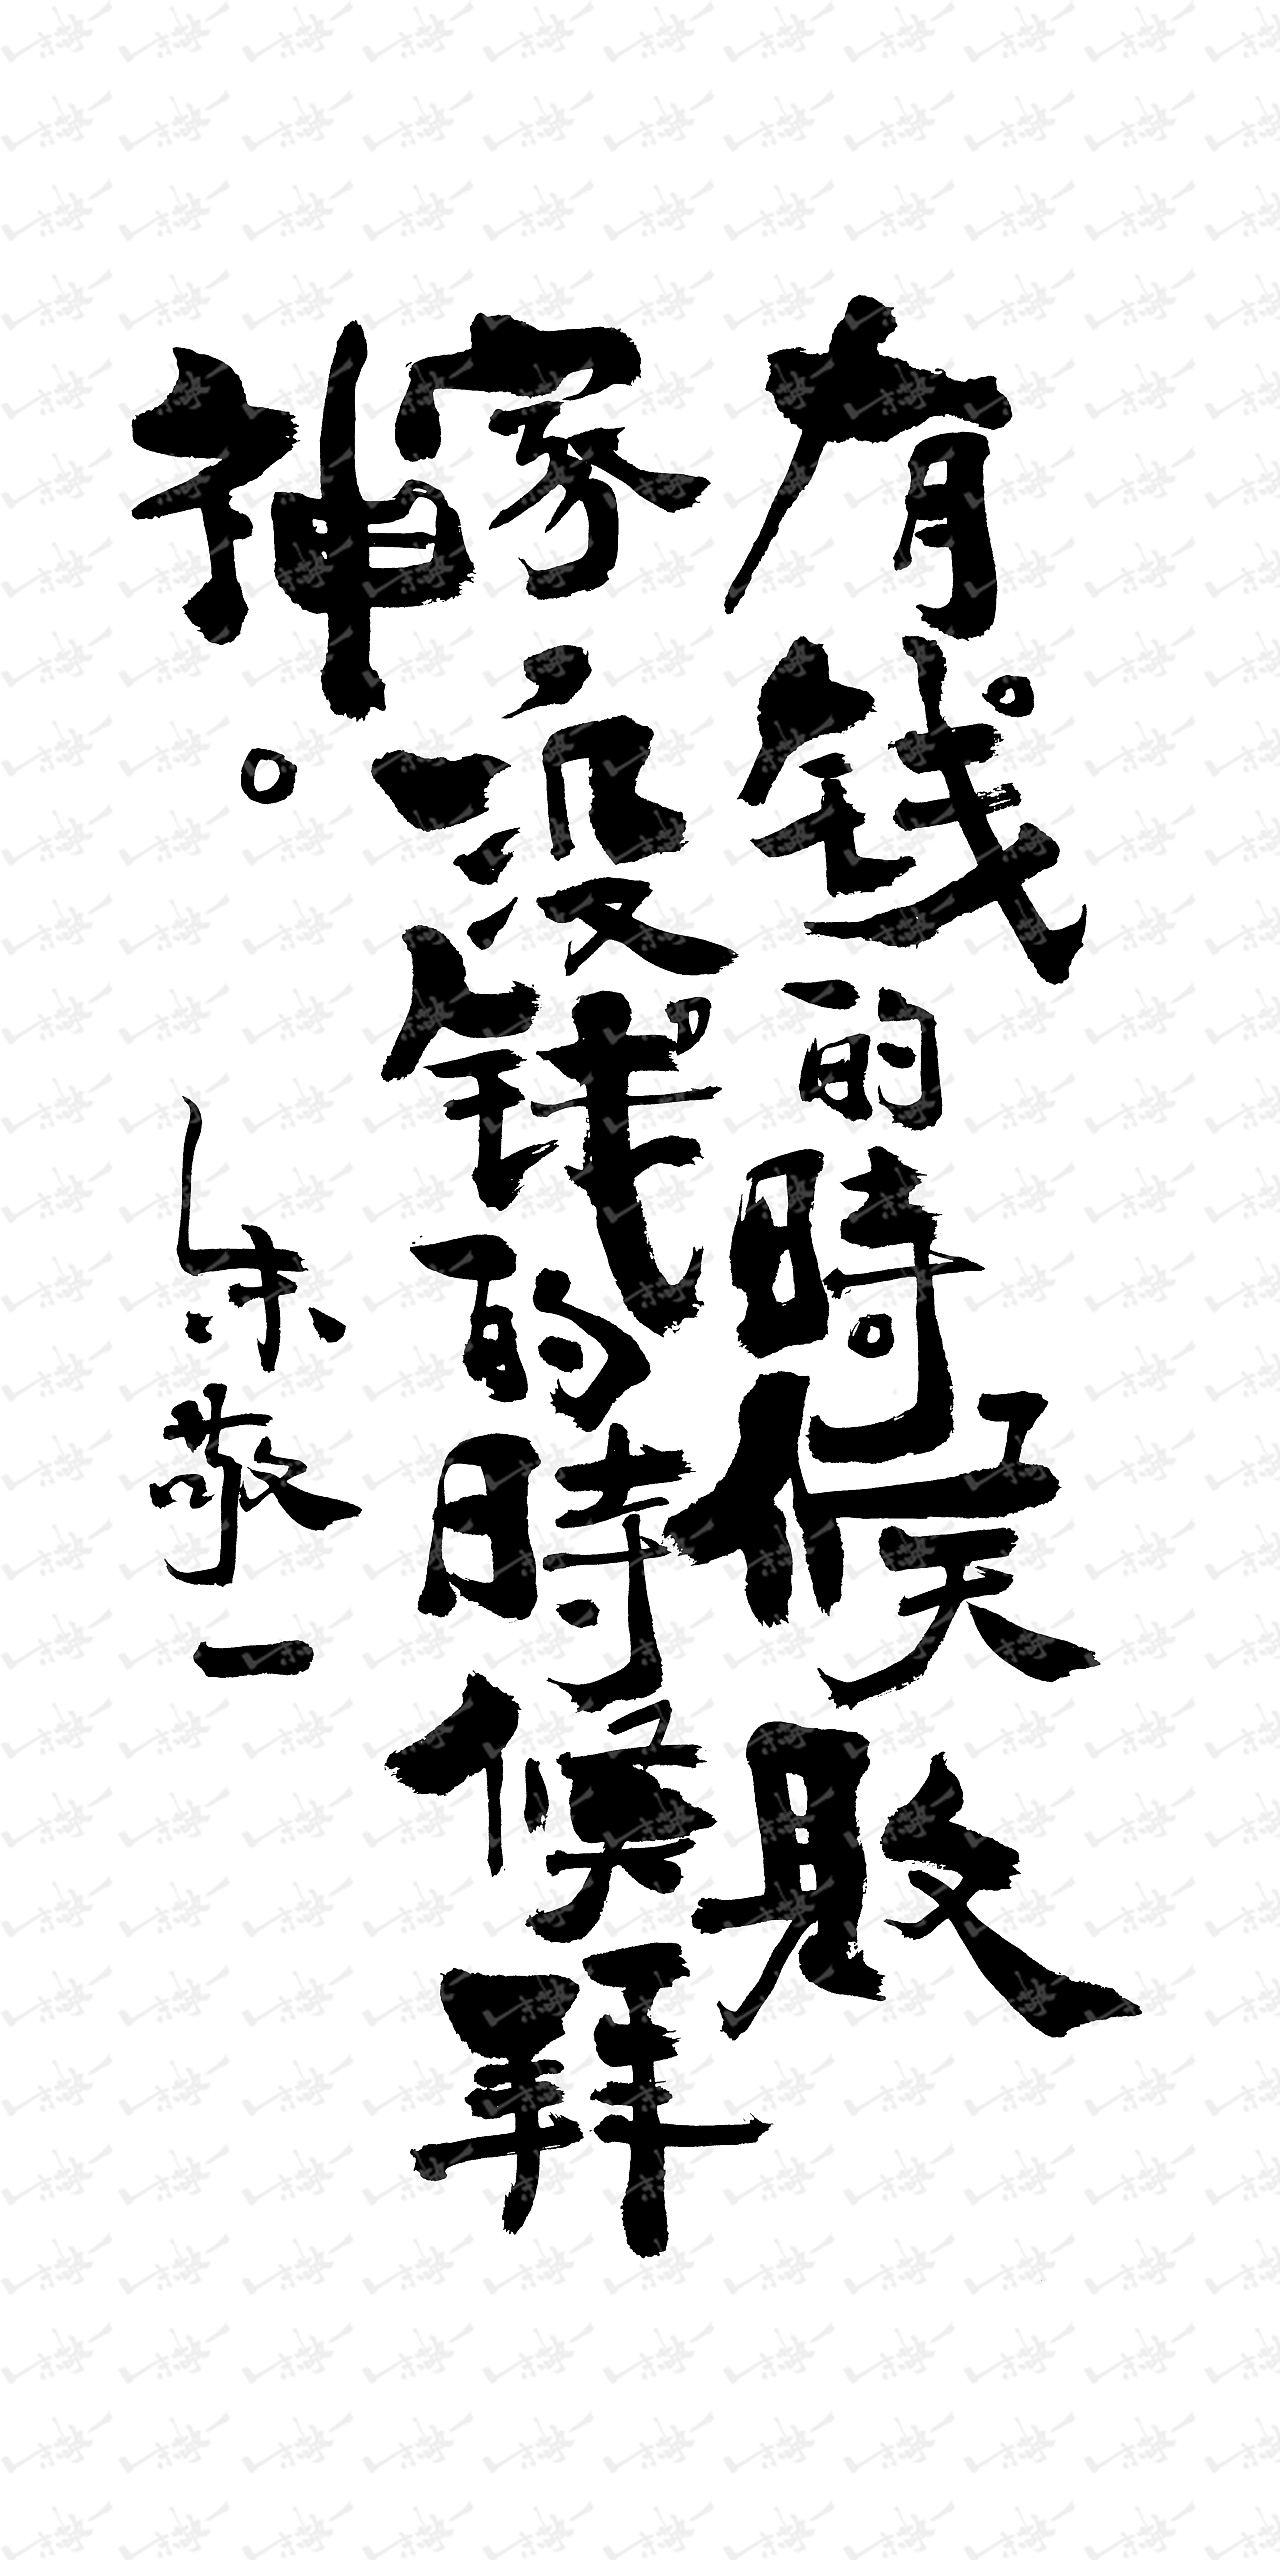 有钱的時候敗
家，没钱的時候拜
神。
朱敬一